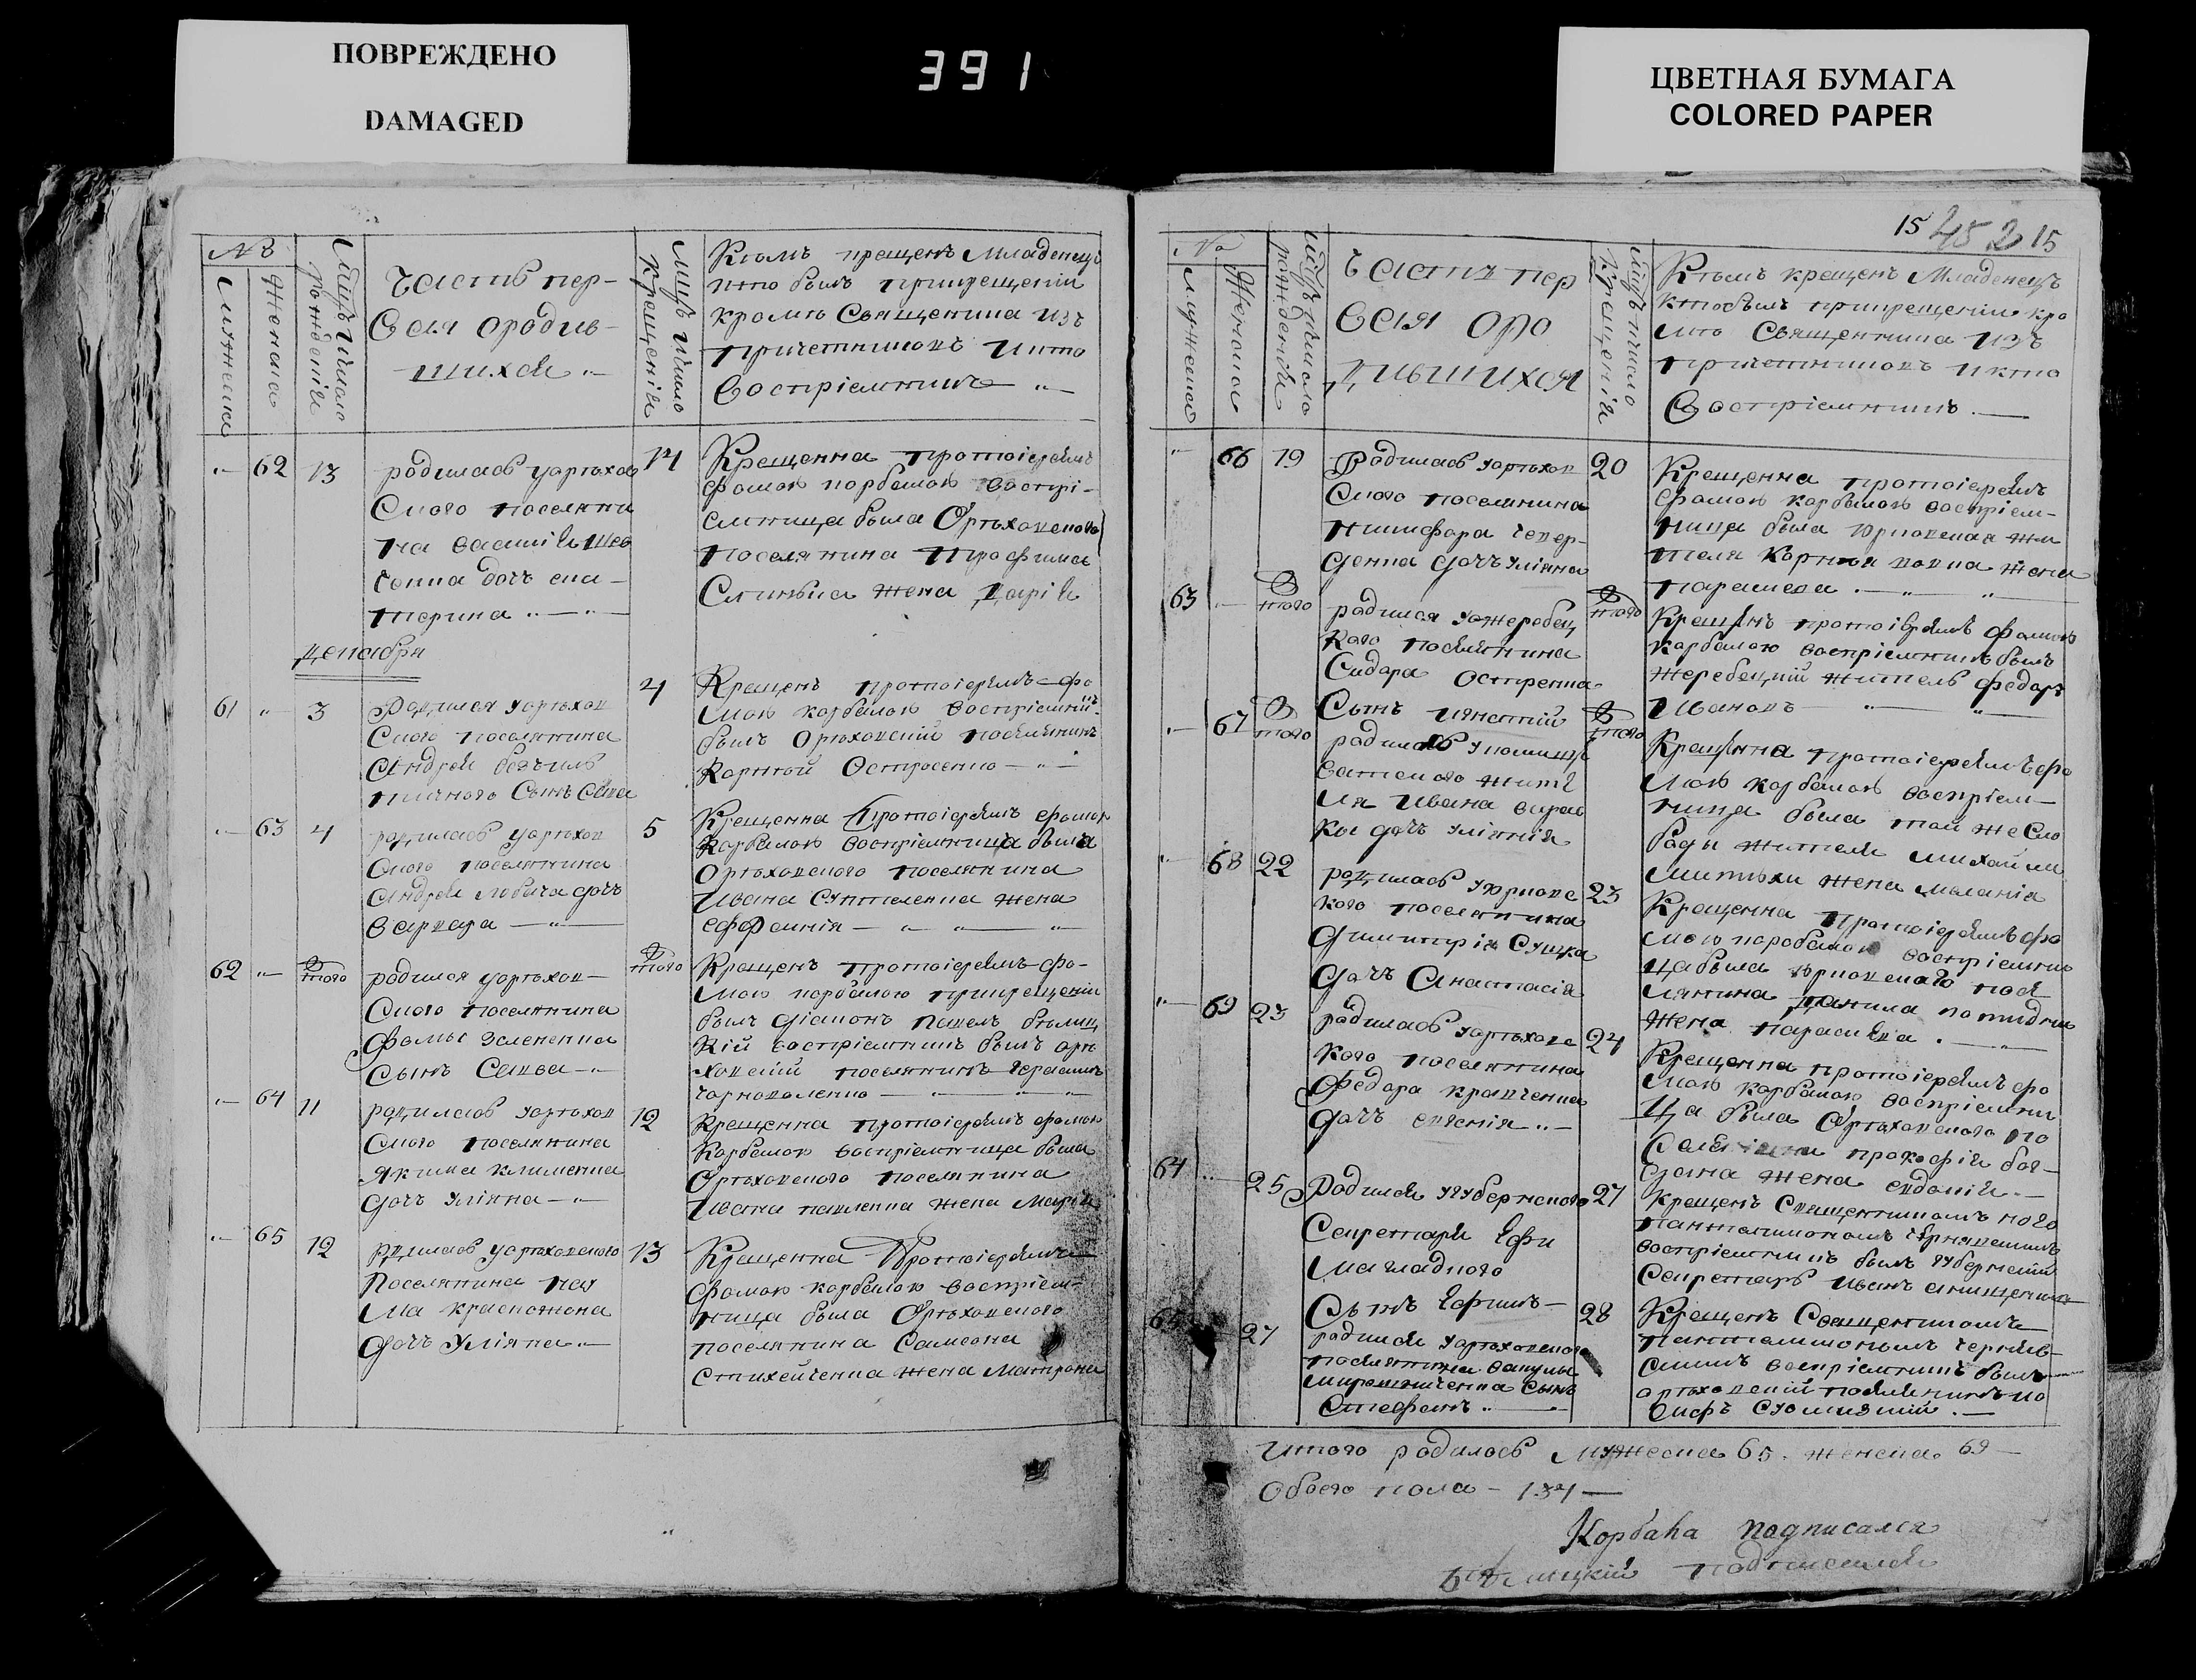 ПОВРЕЖДЕНО
DAMAGED
391
ЦВЕТНАЯ БУМАГА
COLORED PAPER
№
Мужеска
Женска
Мцъ Ичисло рожденія
Часть пер-
вая ородив-
шихся
Мцъ Ичисло крещенія
Кемъ крещенъ Младенецъ
кто былъ прикрещеніи
кроме Священика изъ
причетниковъ икто
воспріемникъ
62 13
родилась уорехов
ского поселяни
на василія шев
ченка дочь ека-
терина
14
Крещенна протоіереемъ
фомою корбаною воспрі-
емница была Ореховского
поселянина Трофима
жена Дарія
декабря
61 3
Родился уорехов
ского поселянина
Андрея
Сынъ Сава
4
Крещенъ протоіереемъ фо
мою корбаною воспріемник
былъ Ореховскій поселянинъ
Карней Остросенко
63 4
родилась уорехов
ского поселянина
Андрея дочь
варвара
5
Крещенна Протоіереемъ фомою
Корбаною воспріемница была
Ореховского поселянина
Ивана жена
ефросинія
62 того
родился уорехов-
ского поселянина
фомы зеленска
Сынъ Савва
того
Крещенъ протоіереемъ фо-
мою корбаною прикрещеніи
былъ діаконъ Павелъ белиц
кій воспріемникъ былъ оре
ховскій поселянинъ герасимъ
64 11
родилась уорехов
ского поселянина
Якима клименка
дочь уліяна
12
Крещенна протоіереемъ фомою
Корбаною воспріемница была
Ореховского поселянина
Ивана павленка жена Марія
65 12
родилась уореховского
поселянина нау
ма краснокона
дочь Уліяна
13
Крещенна Протоіереемъ
фомою корбаною воспріем-
ница была Ореховского
поселянина Самсона
Стихейченка жена Матрона
15 452 15
№
Мужеска
Женска
Мцъ Ичисло рожденія
Части пер
вая оро
дившихся
Мцъ ичисло крещенія
Кемъ крещенъ Младенецъ
ктобылъ прикрещеніи кро
ме Священника изъ
причетниковъ икто
воспріемникъ
66 19
Родилась уорехов
ского поселянина
никифора чепер-
денка дочь уліяна
20
Крещенна протоіереемъ
фомою корбаною воспріем-
ница была юрковская жи
теля Корнея жена
парасков
63 того
родился ужеребец
кого поселянина
Сидора остренка
Сынъ игнатій
того
Крещенъ протоіереемъ фомою
корбаною воспріемникъ былъ
жеребецкій житель федоръ
Ивановъ
67 того
родилась
жите
ля Ивана
дочь уліянія
того
Крещенна протоіереемъ фо
мою корбаною воспріем-
ница была той же Сло
боды жителя михайлы
жена маланія
68 22
родилась уюрковс
кого поселянина
димитрія Сушка
дочь Анастасія
23
Крещенна протоіереемъ фо
мою корбаною воспріемни
ца была юрковского посе
лянина данила
жена параскева
69 23
родилась уореховс
кого поселянина
федора кравченка
дочь евгенія
24
Крещенна протоіереемъ фо
мою корбаною воспріемни
ца была Ореховского по
селянина прокофія боя-
жена евдокія
64 25
Родился угубернского
Секретаря Ефи
ма гладкого
Сынъ Ефимъ
27
Крещенъ Священникомъ
пантелимономъ чернявскимъ
воспріемникъ былъ губернскій
Секретарь Иванъ
65 27
родился уореховского
поселянина вакулы
мирошниченка сынъ
Стефанъ
28
Крещенъ Священникомъ
пантелимономъ черняв-
скимъ воспріемникъ былъ
ореховскій поселянинъ ио
сифъ
Итого родилось Мужеска 65. женска 69
Обоего пола - 134
Корбана подписался
Белицкій подписался